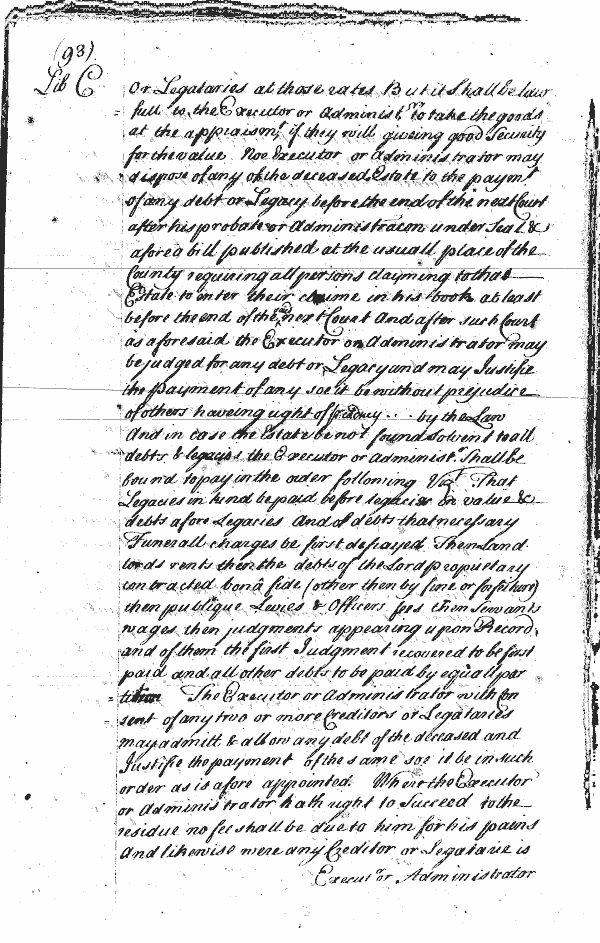 (93)
Lib C
Or Legataries at those rates But it shall be law
full to the Executor or Administ.or to take the goods
at the appraism.t if they will giveing good Security
for the value Noe Executor or Administrator may
dispose of any of the deceased Estate to the paym.t
of any debt or Legacy before the end of the next Court
after his probate or Administracon under Seal &
afore a bill published at the usuall place of the
County requiring all persons clayming to that
Estate to enter their claime in his book at least
before the end of the s.d next Court And after such Court
as aforesaid the Executor or Administrator may
be judged for any debt or Legacy and may Justifie
the payment of any soe it be without prejudice
of others haveing right of .. by the Law
And in case the Estate be not found Solvent to all
debts & legacies the Executor or Administ.r Shall be
bound to pay in the order following Viz.t That
Legacies in kind be paid before legacies in value &
debts afore Legacies And of debts that necessary
Funerall charges be first defrayed Then Land
lords rents then the debts of the Lord Proprietary
contracted bonâ fide (other then by fine or forfeiture)
then publique Levies & Officers fees then Servants
wages then judgments appearing upon Record,
and of them the first Judgment recovered to be first
paid and all other debts to be paid by equall par
tition The Executor or Administrator with Con
sent of any two or more Creditors or Legataries
may admitt & allow any debt of the deceased and
Justifie the payment of the same soe it be in such
order as is afore appointed Where the Executor
or Administrator hath right to Succeed to the
residue no fee shall be due to him for his pains
And likewise were any Creditor or Legatarie is
Execut.or Administrator